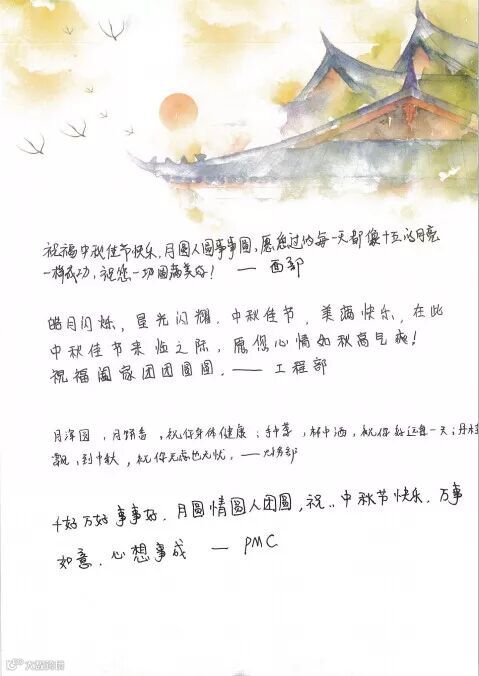 祝福中秋佳节快乐,月圆人圆事事圆,愿您过的每一天都像十五的月亮
一样成功,祝您一切圆满美好! —— 西部
皓月闪烁,星光闪耀,中秋佳节,美满快乐,在此
中秋佳节来临之际,愿您心情如秋高气爽!
祝福阖家团团圆圆.—— 工程部
月浑圆,月饼香,祝你身体健康;手中茶,杯中酒,祝你好运每一天;丹桂
飘,到中秋,祝你无虑也无忧,——
千好万好事事好,月圆情圆人团圆,祝..中秋节快乐.万事
如意.心想事成 —— PMC